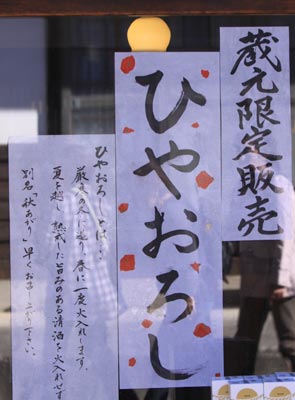 蔵元限定販売
ひやおろし
ひやおろしとは…
厳冬の火に造り、春に一度火入れします。
夏を越し、熟成した旨みのある清酒を火入れせず
別名「秋あがり」早くお召し上がり下さい。